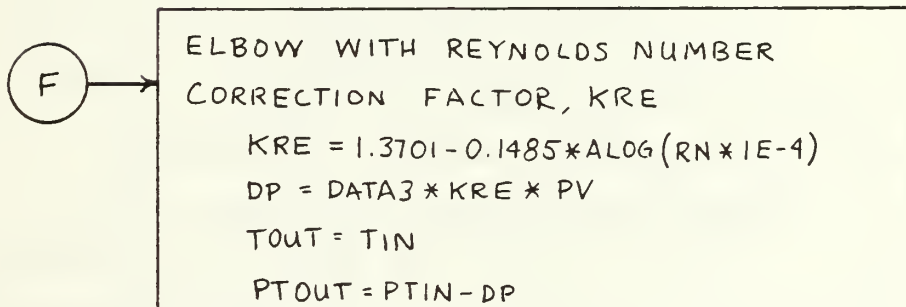 F
ELBOW WITH REYNOLDS NUMBER
CORRECTION FACTOR, KRE
KRE = 1.3701-0.1485*ALOG(RN*1E-4)
DP = DATA3*KRE*PV
TOUT = TIN
PTOUT = PTIN-DP